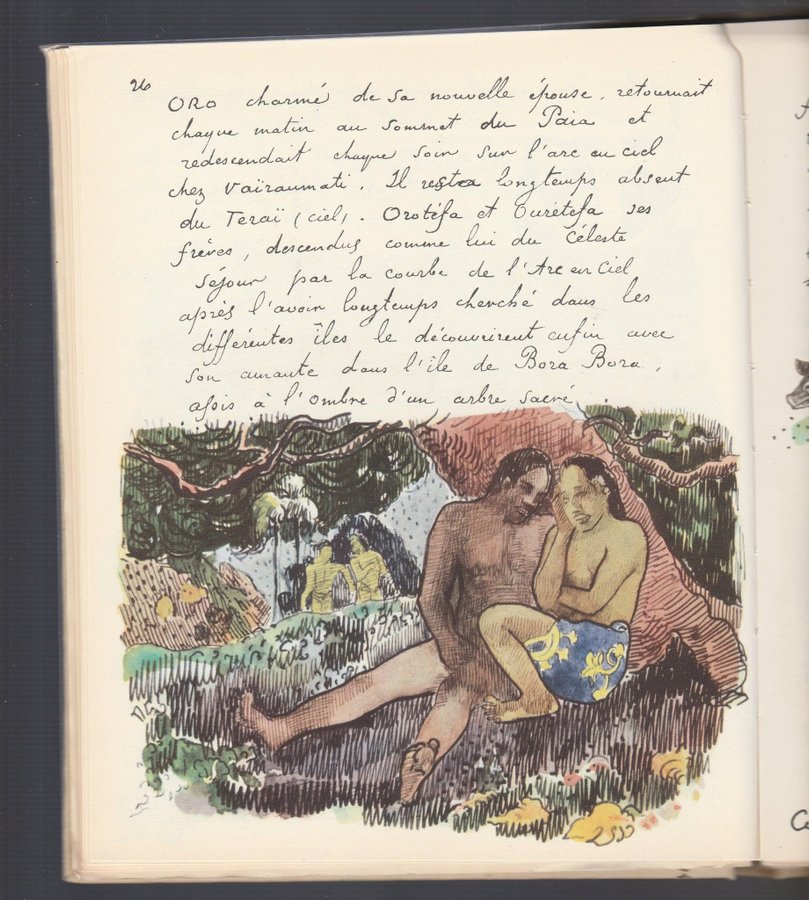 26
ORO charmé de sa nouvelle épouse. retournait
chaque matin au sommet du Paia et
redescendait chaque soir sur l'arc en ciel
chez Vaïraumati. Il resta longtemps absent
du Teraï (ciel). Orotéfa et Ourétéfa ses
frêres, descendus comme lui du Céleste
Séjour par la courbe de l'Arc en Ciel
après l'avoir longtemps cherché dans les
différentes îles le découvrirent enfin avec
son amante dans l'île de Bora Bora,
assis à l'ombre d'un arbre sacré.